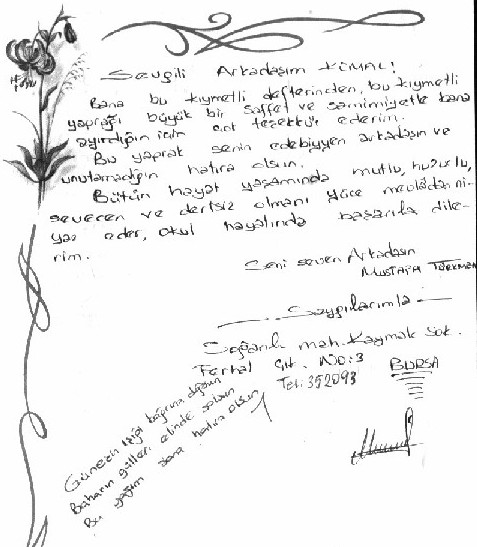 Sevgili Arkadaşım KEMAL!
Bana bu kıymetli defterinden, bu kıymetli
yaprağı büyük bir saffet ve samimiyetle bana
ayırdığın için çok teşekkür ederim.
Bu yaprak senin edebiyyen arkadaşın ve
unutamadığın hatıra olsun.
Bütün hayat yaşamında mutlu, huzurlu,
sevecen ve dertsiz olmanı yüce mevlâdan ni-
yaz eder, okul hayatında başarıla dile-
rim.
Seni seven Arkadaşın
MUSTAFA TÜRKMEN
Saygılarımla
Soğanlı mah. Kaymak Sok.
Ferhat Çık. NO:3
Tel: 352093 BURSA
Güneşin ışığı bağrına dolsun
Baharın gülleri elinde solsun
Bu yazım sana hatıra olsun